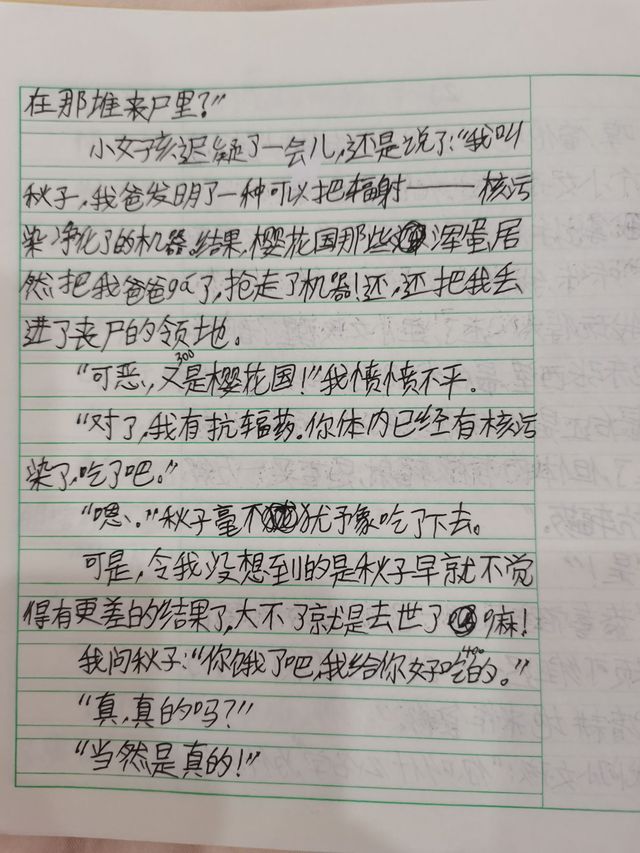 在那堆丧尸里?”
小女孩迟疑了一会儿,还是说了:“我叫
秋子,我爸发明了一种可以把辐射——核污
染净化了的机器。结果,樱花国那些浑蛋,居
然把我爸爸ga了,抢走了机器!还,还把我丢
进了丧尸的领地。
300
“可恶,又是樱花国!”我愤愤不平。
“对了,我有抗辐药。你体内已经有核污
染了,吃了吧。”
“嗯、。”秋子毫不犹予象吃了下去。
可是,令我没想到的是秋子早就不觉
得有更差的结果了,大不了就是去世了嘛!
400
我问秋子:“你饿了吧,我给你好吃的。”
“真,真的吗?”
“当然是真的!”